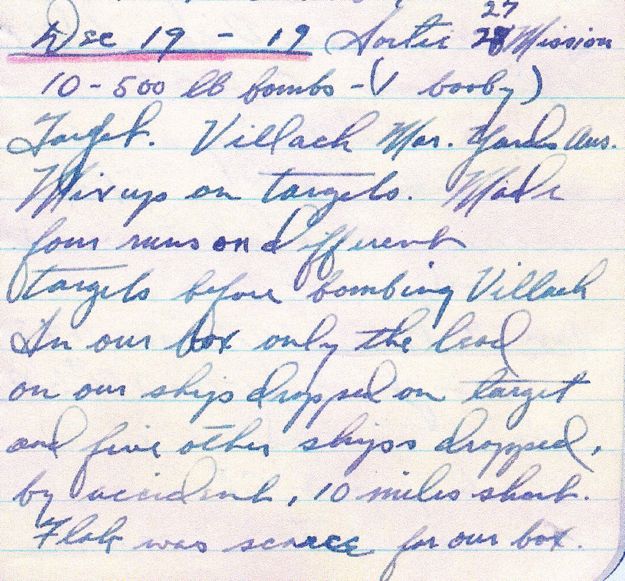 Dec 19 - 19 Sortie 27 Mission
10 - 500 lb bombs - (1 booby)
Target. Villach Mar. Yards Aus.
Mixup on targets. Made
four runs on different
targets before bombing Villach
In our box only the lead
on our ships dropped on target
and five other ships dropped,
by accident, 10 miles short.
Flak was scarce for our box.